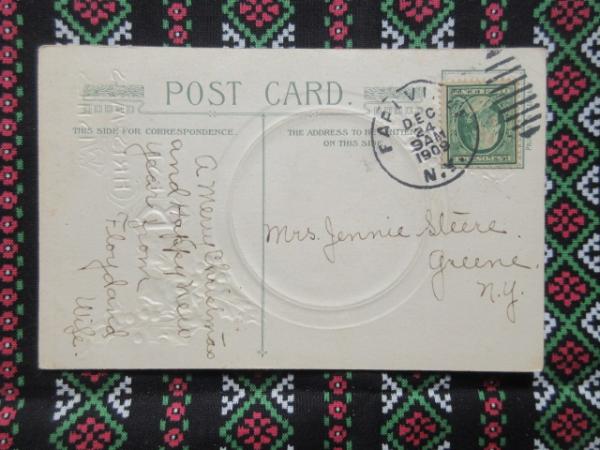 POST CARD.
THIS SIDE FOR CORRESPONDENCE.
THE ADDRESS TO BE WRITTEN
ON THIS SIDE
DEC
24
9 AM
1909
N.
A Merry Christmas
and Happy New
Year from
Floyd and
Wife.
Mrs. Jennie Steere.
Greene.
N.Y.